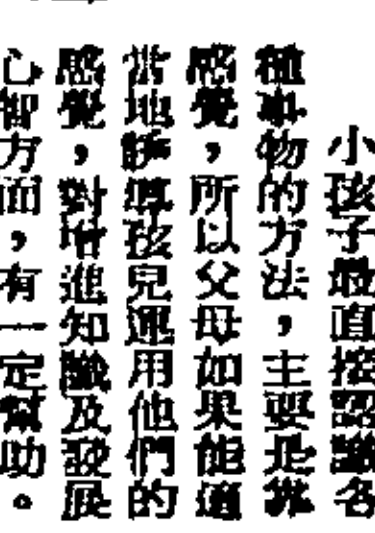 小孩子最直接認識各
種事物的方法，主要是靠
感覺，所以父母如果能適
當地誘導孩兒運用他們的
感覺，對增進知識及發展
心智方面，有一定幫助。